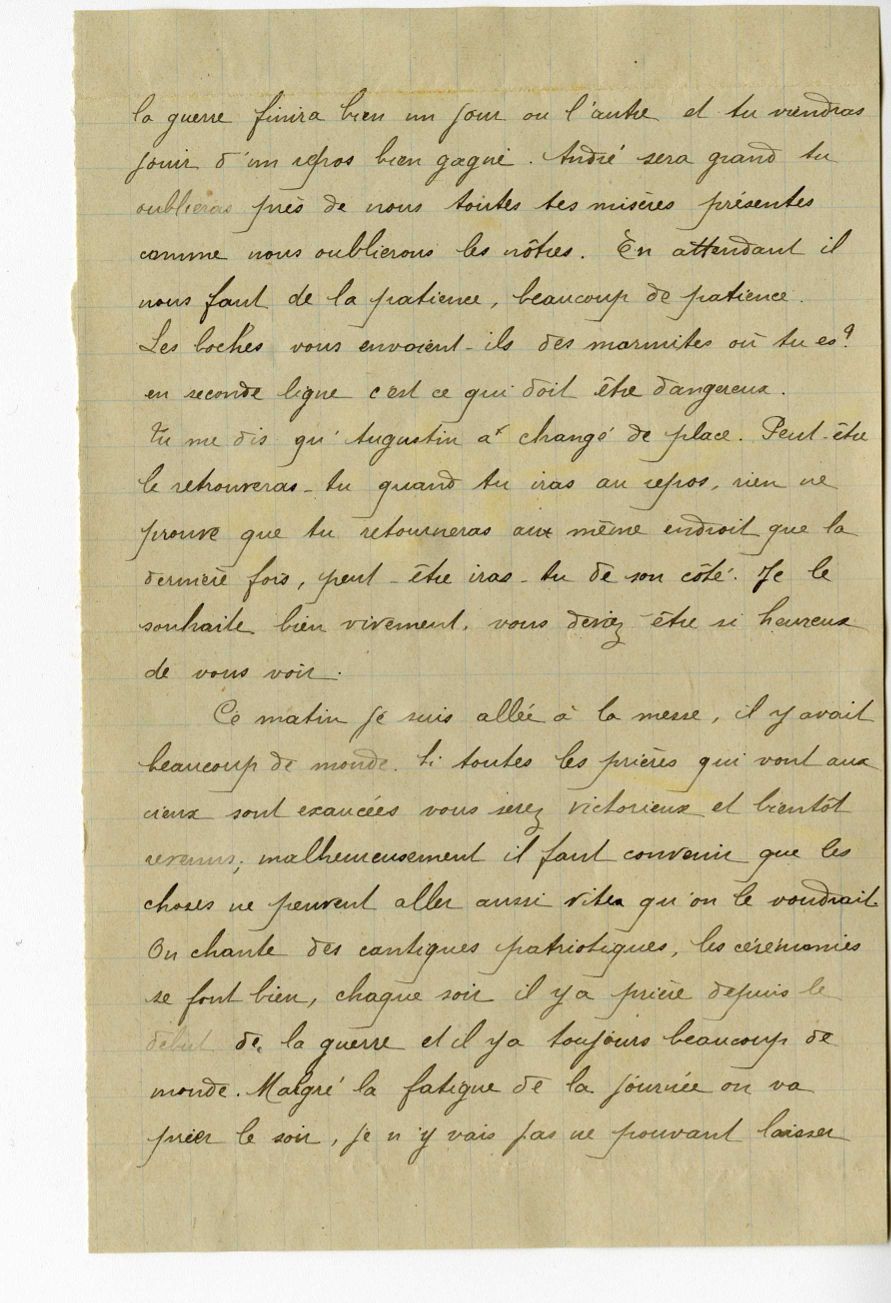 la guerre finira bien un jour ou l'autre et tu viendras
jouir d'un repos bien gagné. André sera grand tu
oublieras près de nous toutes tes misères présentes
comme nous oublierons les nôtres. En attendant il
nous faut de la patience, beaucoup de patience.
Les boches vous envoient-ils des marmites où tu es?
en seconde ligne c'est ce qui doit être dangereux.
Tu me dis qu'Augustin a changé de place. Peut-être
le retrouveras-tu quand tu iras au repos, rien ne
prouve que tu retourneras au même endroit que la
dernière fois, peut-être iras-tu de son côté. Je le
souhaite bien vivement, vous deviez être si heureux
de vous voir.
Ce matin je suis allée à la messe, il y avait
beaucoup de monde. Si toutes les prières qui vont aux
cieux sont exaucées vous serez victorieux et bientôt
revenus; malheureusement il faut convenir que les
choses ne peuvent aller aussi vite qu'on le voudrait.
On chante des cantiques patriotiques, les cérémonies
se font bien, chaque soir il y a prière depuis le
début de la guerre et il y a toujours beaucoup de
monde. Malgré la fatigue de la journée on va
prier le soir, je n'y vais pas ne pouvant laisser